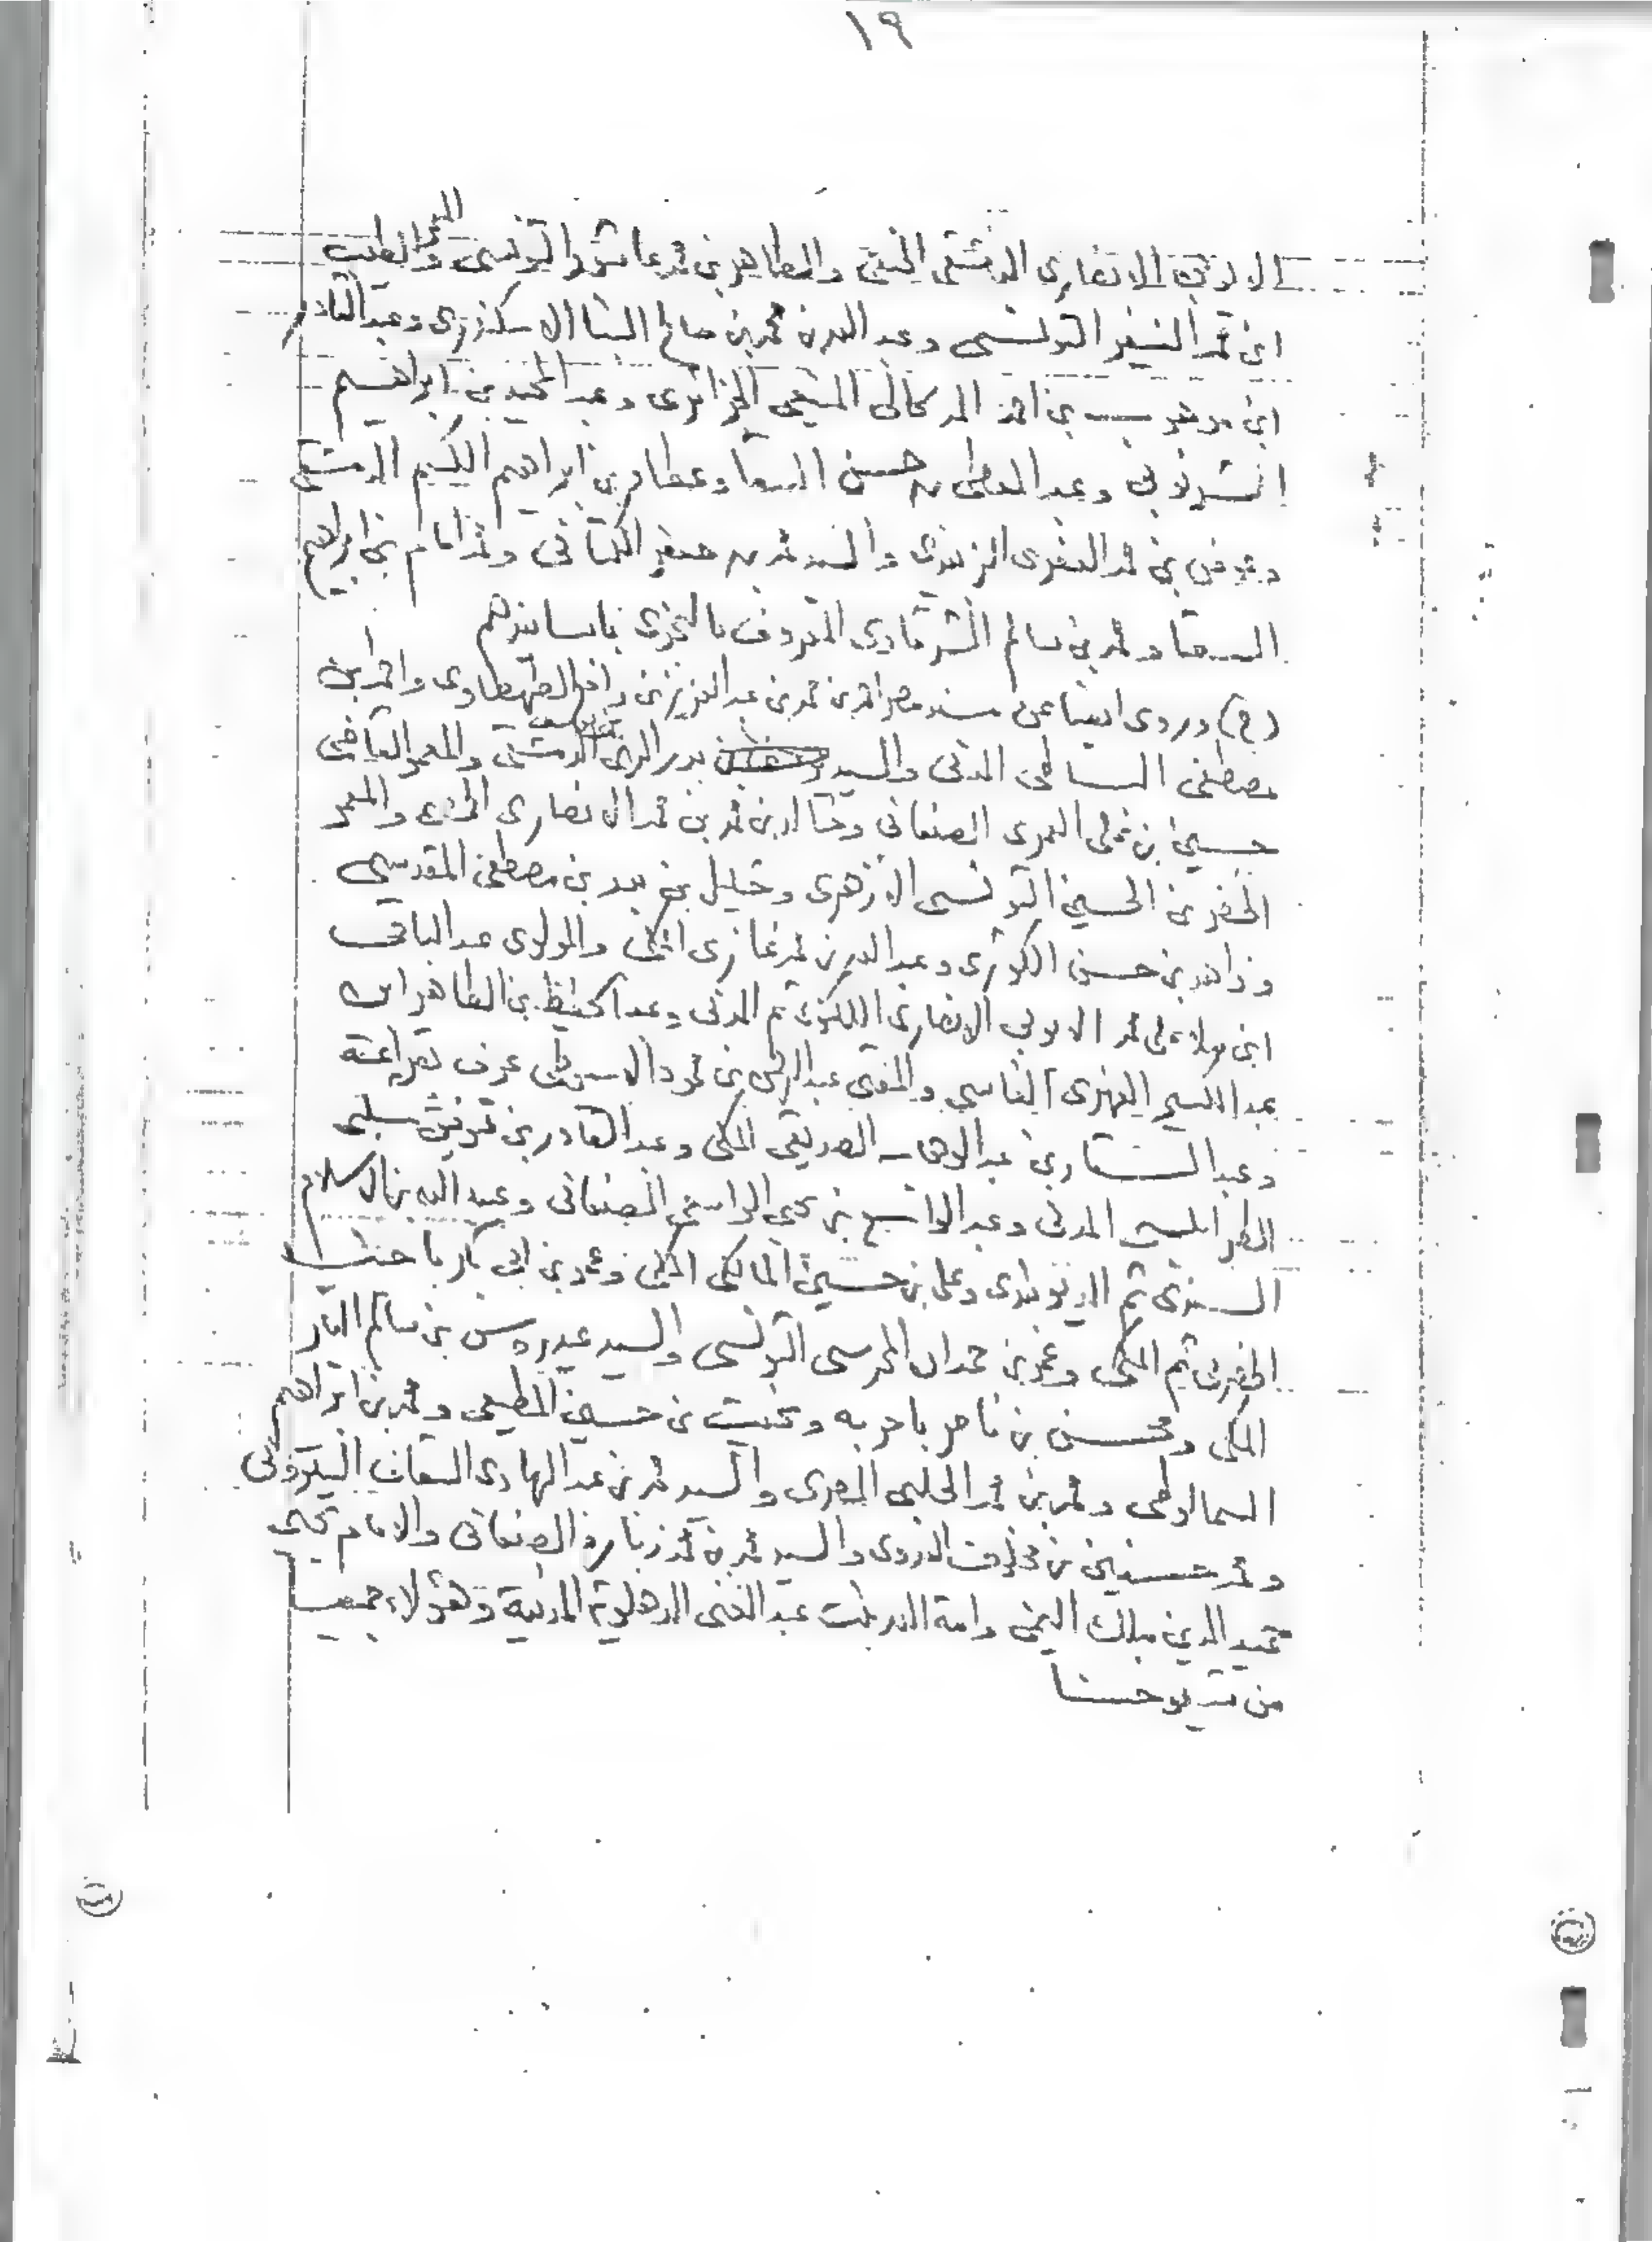 ١٩
الايوبي الانصاري الدمشقي الحنفي والطاهر بن محمد عاشور التونسي والطيب
ابن محمد النيفر التونسي وعبد الله بن محمد بن صالح البنا الاسكندري وعبد القادر
ابن موهوب بن احمد الجزائري وعبد المجيد بن ابراهيم
الشرنوبي وعبد المعطي بن حسن السقا وعطاء بن ابراهيم الكسم الدمشقي
وعوض بن محمد العفري الزبيدي والسيد محمد بن جعفر الكتاني ومحمد امام بن ابراهيم
السقا ومحمد بن سالم الشرقاوي المعروف بالنجدي باسانيدهم
(ح) وروى ايضا عن مسند مصر احمد بن محمد بن عبد العزيز بن رافع الطهطاوي واحمد بن
مصطفى الساطي المدني والسيد بدر الدين الدمشقي والمعمر القاضي
حسين بن علي العمري الصنعاني وخالد بن محمد بن محمد الانصاري والمعمر
الخضر بن الحسين التونسي الازهري وخليل بن بدر بن مصطفى المقدسي
وزاهد بن حسن الكوثري وعبد الله بن محمد غازي المكي والمولوي عبد الباقي
ابن ملا علي محمد الايوبي الانصاري اللكنوي ثم المدني وعبد الحفيظ بن الطاهر ابن
عبد الكبير الفهري الفاسي والمفتي عبد الرحمن بن محمود الاسيوطي عرف بقراعة
وعبد الستار بن عبد الوهاب الصديقي المكي وعبد القادر بن توفيق شلبي
الطرابلسي المدني وعبد الواسع بن يحيى الواسعي الصنعاني وعبيد الله بن الاسلام
السندي ثم الديوبندي وعلي بن حسين المالكي المكي وعمر بن ابي بكر باجنيد
الحضرمي ثم المكي وعمر بن حمدان المحرسي التونسي والسيد عيدروس بن سالم البار
المكي ومحسن بن ناصر باحربه وبخيت بن حسين المطيعي ومحمد بن ابراهيم
السمالوطي ومحمد بن محمد الحلبي المصري والسيد محمد بن عبد الهادي السقاف
ومحمد حسنين بن مخلوف العدوي والسيد محمد بن محمد زبارة الصنعاني والامام يحيى
حميد الدين ملك اليمن وامة الله بنت عبد الغني الدهلوي ثم المدنية وهؤلاء جميعا
من شيوخنا